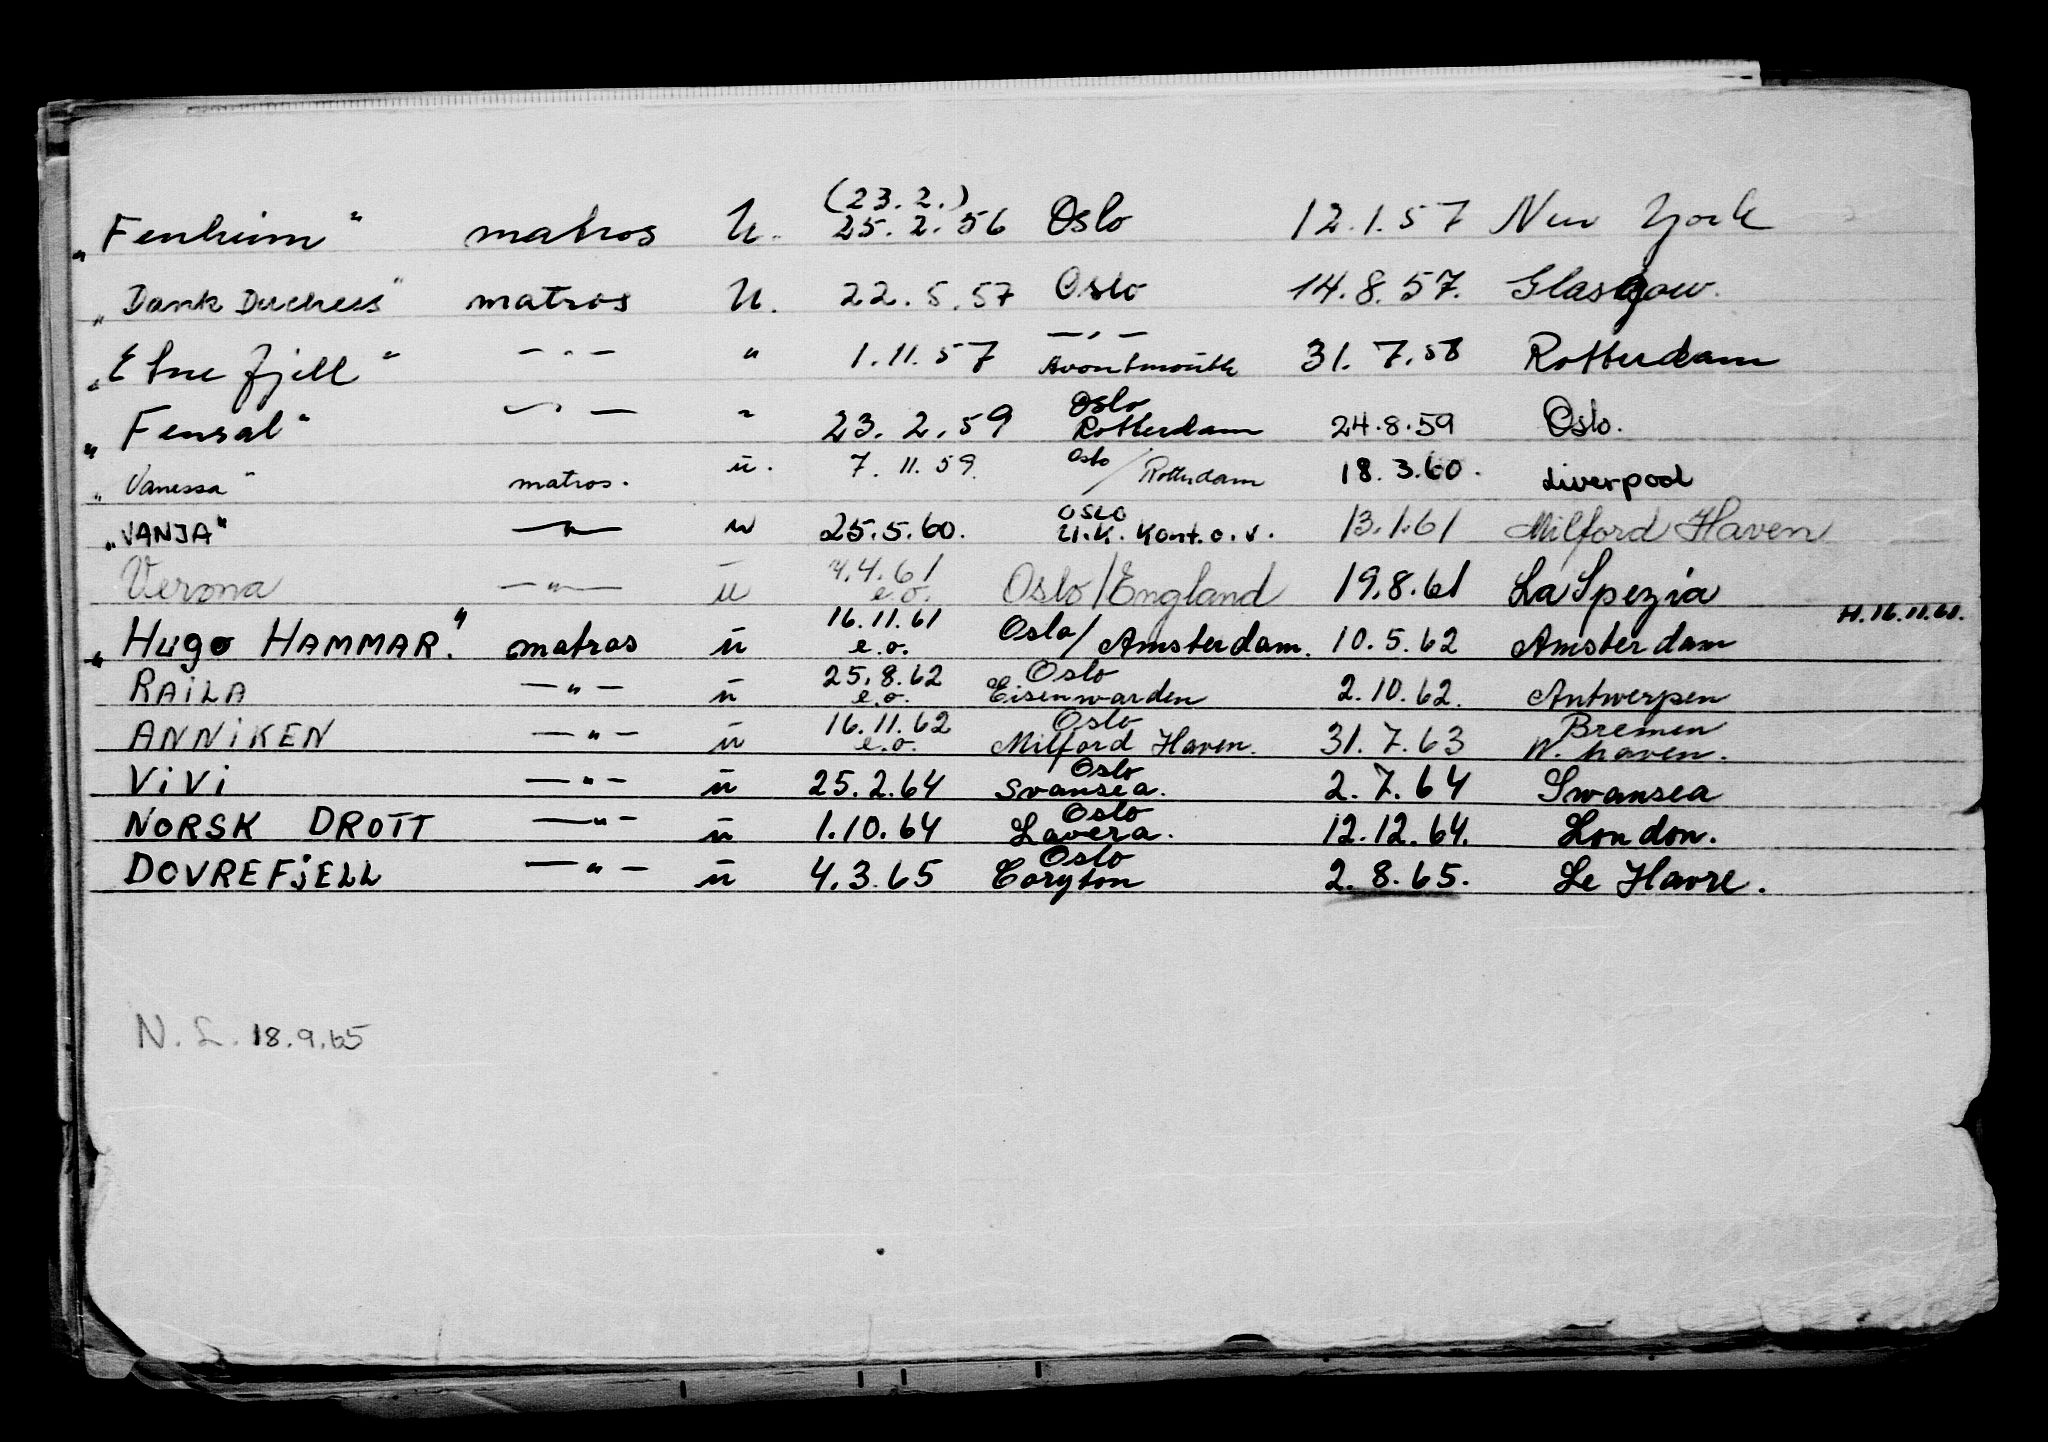 (23.2.)
„Fenheim" matros U. 25.2.56 Oslo 12.1.57 New York
„Dank Duchess" matros U. 22.5.57 Oslo 14.8.57. Glasgow.
— . —
„Etnefjell" — " — " 1.11.57 Avontmouth 31.7.58 Rotterdam
Oslo
„Fensal" — " — " 23.2.59 Rotterdam 24.8.59 Oslo.
„Vanessa" matros. u. 7.11.59. Oslo / Rotterdam 18.3.60. Liverpool
OSLO
„VANJA" — " — u 25.5.60. U.K. Kont. o. v. 13.1.61 Milford Haven
Verona — " — u 4.4.61 e.o. Oslo / England 19.8.61 La Spezia
H. 16.11.61.
„HUGO HAMMAR." matros u 16.11.61 e.o. Oslo / Amsterdam. 10.5.62 Amsterdam
RAILA — " — u 25.8.62 e.o. Oslo Eisenwarden 2.10.62. Antwerpen
ANNiKEN — " — u 16.11.62 e.o. Oslo Milford Haven. 31.7.63 Bremen W. haven.
ViVi — " — u 25.2.64 Oslo Svansea. 2.7.64 Swansea
NORSK DROTT — " — u 1.10.64 Oslo Lavera. 12.12.64. London.
DOVREFjELL — " — u 4.3.65 Oslo Coryton 2.8.65. Le Havre.
N. L. 18.9.65